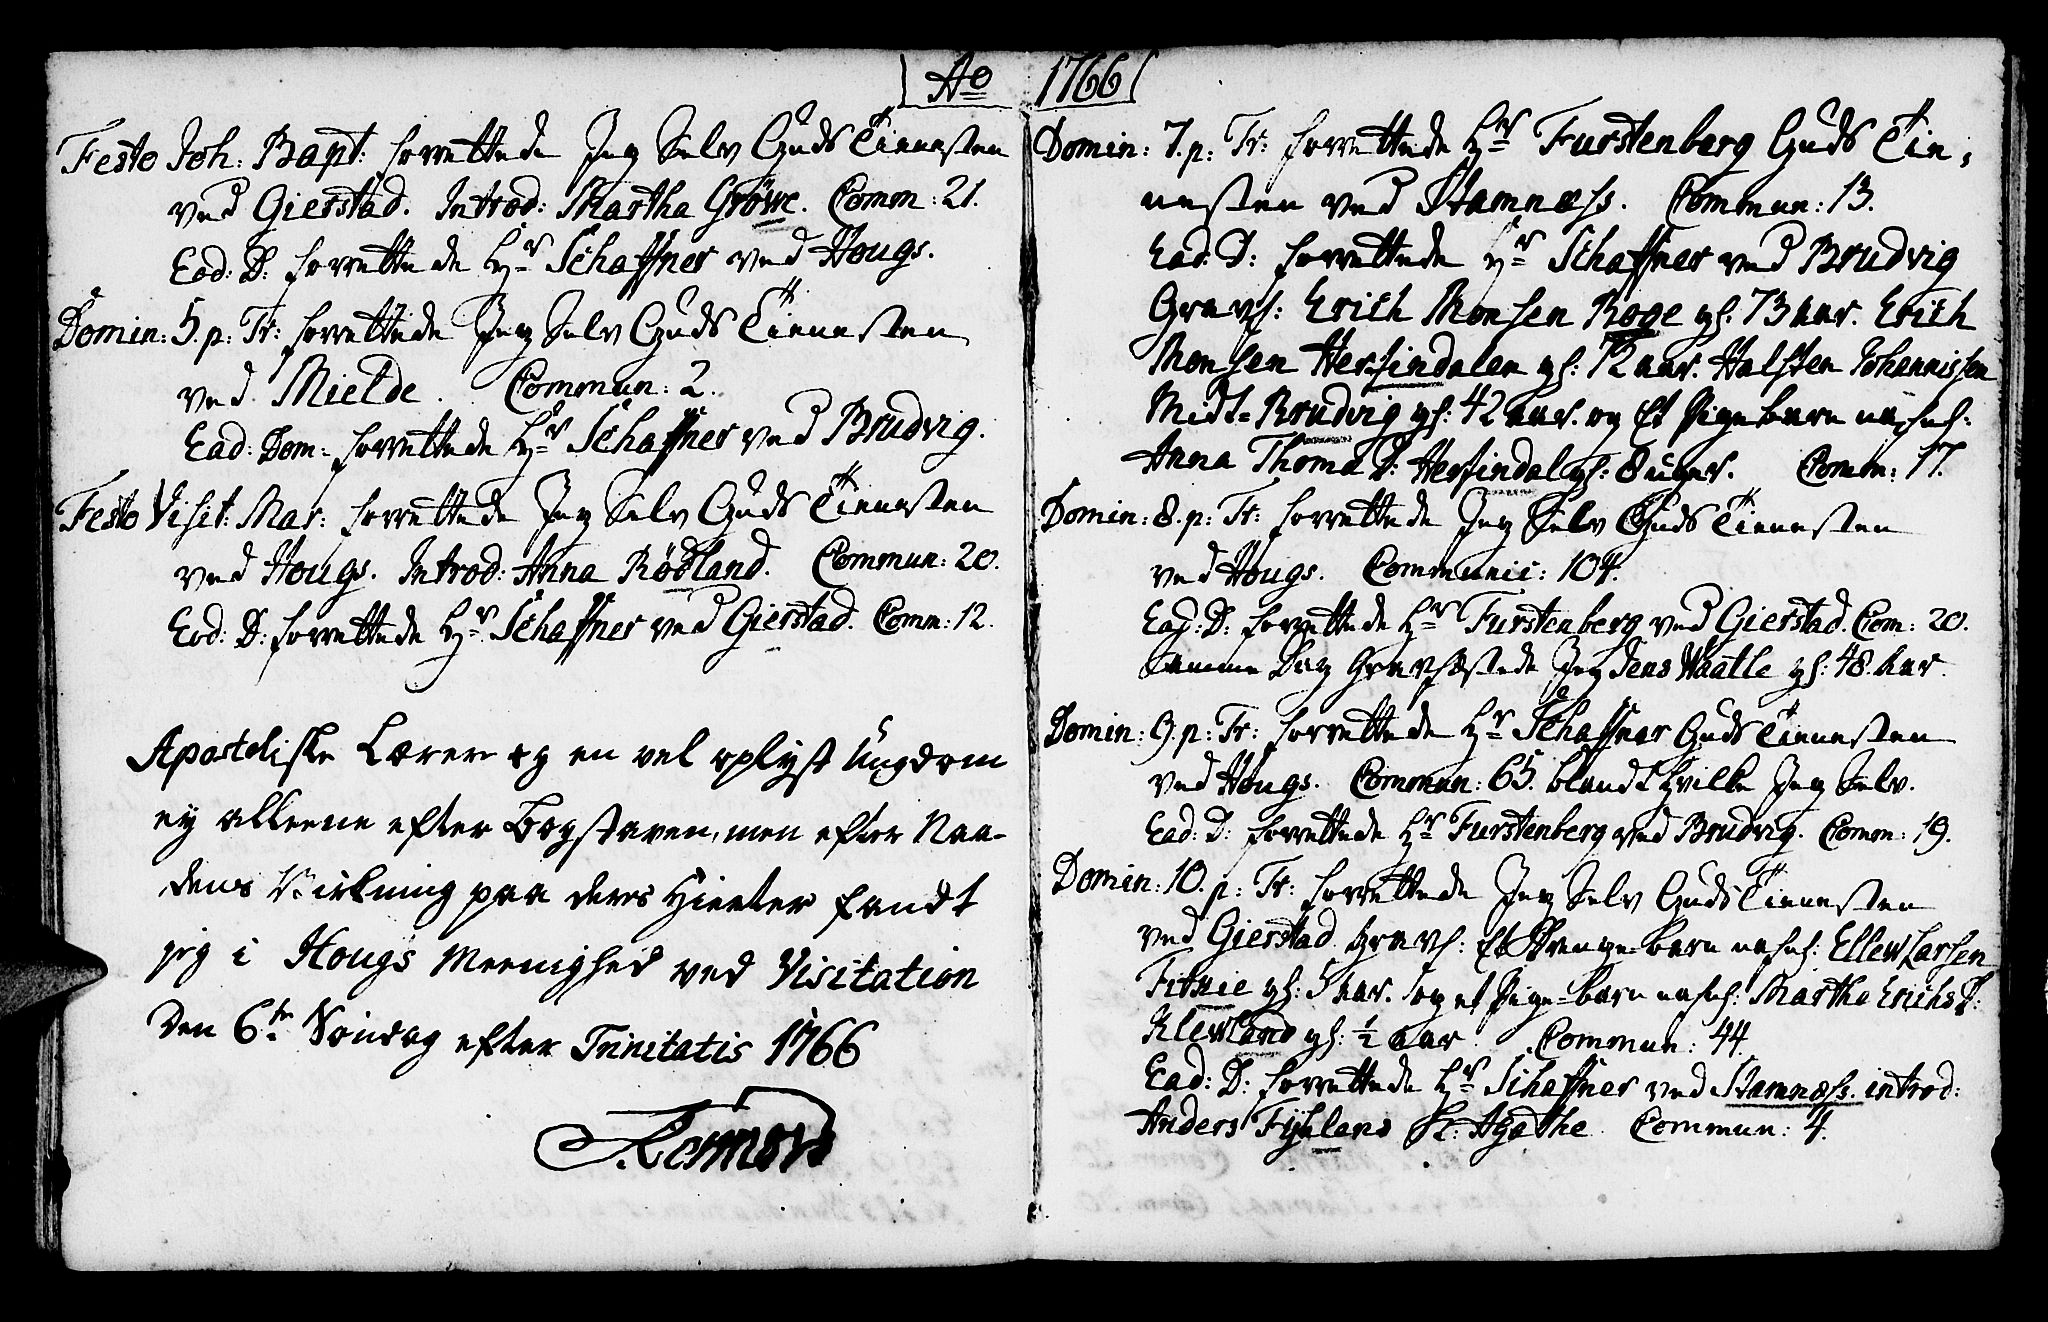 Ao 1766
Festo Joh: Bapt: forrettede Jeg Selv Guds Tienesten
ved Gierstad. Introd: Martha Gröwe. Comm: 21.
Eod: D: forrettede Hr Schaffner ved Hougs.
Domin: 5. p: Tr: forrettede Jeg Selv Guds Tienesten
ved Mielde. Commun: 2.
Ead: Dom: forrettede Hr Schaffner ved Brudvig.
Festo Visit: Mar: forrettede Jeg Selv Guds Tienesten
ved Hougs. Introd: Anna Rödland. Commun: 20.
Eod: D: forrettede Hr Schaffner ved Gierstad. Comm: 12.
Apostoliske Lærer og en vel oplyst Ungdom
ey alleene efter Bogstaven, men efter Naa-
dens Virkning paa deres Hierter fandt
jeg i Hougs Meenighed ved Visitation
den 6te Söndag efter Trinitatis 1766
Domin: 7. p: Tr: forrettede Hr Furstenberg Guds Tie-
nesten ved Stamnæss. Commun: 13.
Ead: D: forrettede Hr Schaffner ved Brudvig
Gravf: Erich Monsen Roge gl: 73 aar. Erich
Monsen Hersindalen gl: 72 aar. Halsten Johannissen
Midt-Brudvig gl: 42 aar. og Et Pigebarn nafnl:
Anna Thoma D: Hersindal gl: 8 uger. Comm: 17.
Domin: 8. p: Tr: forrettede Jeg Selv Guds Tienesten
ved Hougs. Communic: 104.
Ead: D: forrettede Hr Furstenberg ved Gierstad. Com: 20.
Samme Dag Gravfæstede Jeg Jens Waatle gl: 48 aar.
Domin: 9. p: Tr: forrettede Hr Schaffner Guds Tienesten
ved Hougs. Commun: 65. blandt hvilke Jeg Selv.
Ead: D: forrettede Hr Furstenberg ved Brudvig. Comm: 19.
Domin: 10. p: Tr: forrettede Jeg Selv Guds Tienesten
ved Gierstad. Gravf: Et Drenge-barn nafnl: Ellew Larsen
gl: 5 aar. og et Pige-barn nafnl: Martha Erichs D:
Klewland gl: ½ aar. Commun: 44.
Ead: D: forrettede Hr Schaffner ved Stamnæss. introd:
Anders Agathe. Commun: 4.